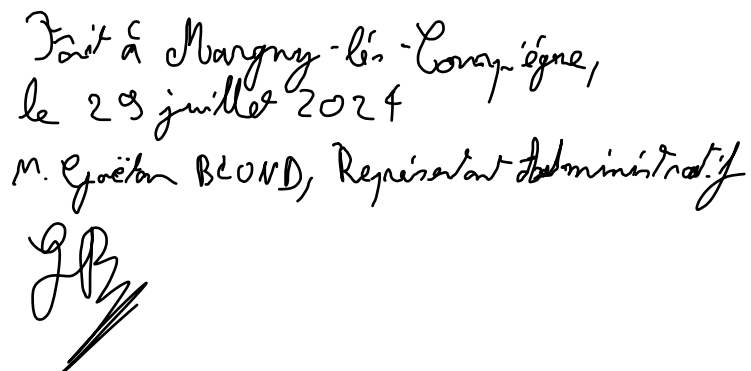 Fait à Margny-lés-Compiégne,
le 29 juillet 2024
M. Gaëtan BLOND, Représentant Administratif
GB